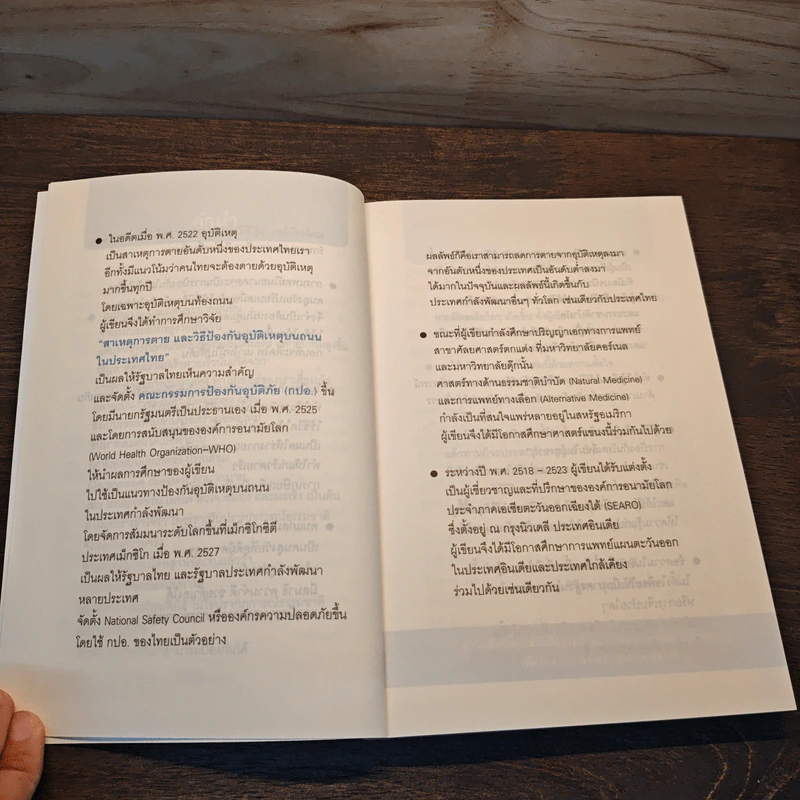 ● ในอดีตเมื่อ พ.ศ. 2522 อุบัติเหตุ
เป็นสาเหตุการตายอันดับหนึ่งของประเทศไทยเรา
อีกทั้งมีแนวโน้มว่าคนไทยจะต้องตายด้วยอุบัติเหตุ
มากขึ้นทุกปี
โดยเฉพาะอุบัติเหตุบนท้องถนน
ผู้เขียนจึงได้ทำการศึกษาวิจัย
"สาเหตุการตาย และวิธีป้องกันอุบัติเหตุบนถนน
ในประเทศไทย"
เป็นผลให้รัฐบาลไทยเห็นความสำคัญ
และจัดตั้ง คณะกรรมการป้องกันอุบัติภัย (กปอ.) ขึ้น
โดยมีนายกรัฐมนตรีเป็นประธานเอง เมื่อ พ.ศ. 2525
และโดยการสนับสนุนขององค์การอนามัยโลก
(World Health Organization-WHO)
ให้นำผลการศึกษาของผู้เขียน
ไปใช้เป็นแนวทางป้องกันอุบัติเหตุบนถนน
ในประเทศกำลังพัฒนา
โดยจัดการสัมมนาระดับโลกขึ้นที่เม็กซิโกซิตี
ประเทศเม็กซิโก เมื่อ พ.ศ. 2527
เป็นผลให้รัฐบาลไทย และรัฐบาลประเทศกำลังพัฒนา
หลายประเทศ
จัดตั้ง National Safety Council หรือองค์กรความปลอดภัยขึ้น
โดยใช้ กปอ. ของไทยเป็นตัวอย่าง
ผลลัพธ์ก็คือเราสามารถลดการตายจากอุบัติเหตุลงมา
จากอันดับหนึ่งของประเทศเป็นอันดับต่ำลงมา
ได้มากในปัจจุบันและผลลัพธ์นี้เกิดขึ้นกับ
ประเทศกำลังพัฒนาอื่นๆ ทั่วโลก เช่นเดียวกับประเทศไทย
● ขณะที่ผู้เขียนกำลังศึกษาปริญญาเอกทางการแพทย์
สาขาศัลยศาสตร์ตกแต่ง ที่มหาวิทยาลัยคอร์เนล
และมหาวิทยาลัยดุ๊กนั้น
ศาสตร์ทางด้านธรรมชาติบำบัด (Natural Medicine)
และการแพทย์ทางเลือก (Alternative Medicine)
กำลังเป็นที่สนใจแพร่หลายอยู่ในสหรัฐอเมริกา
ผู้เขียนจึงได้มีโอกาสศึกษาศาสตร์แขนงนี้ร่วมกันไปด้วย
● ระหว่างปี พ.ศ. 2518 - 2523 ผู้เขียนได้รับแต่งตั้ง
เป็นผู้เชี่ยวชาญและที่ปรึกษาขององค์การอนามัยโลก
ประจำภาคเอเชียตะวันออกเฉียงใต้ (SEARO)
ซึ่งตั้งอยู่ ณ กรุงนิวเดลี ประเทศอินเดีย
ผู้เขียนจึงได้มีโอกาสศึกษาการแพทย์แผนตะวันออก
ในประเทศอินเดียและประเทศใกล้เคียง
ร่วมไปด้วยเช่นเดียวกัน